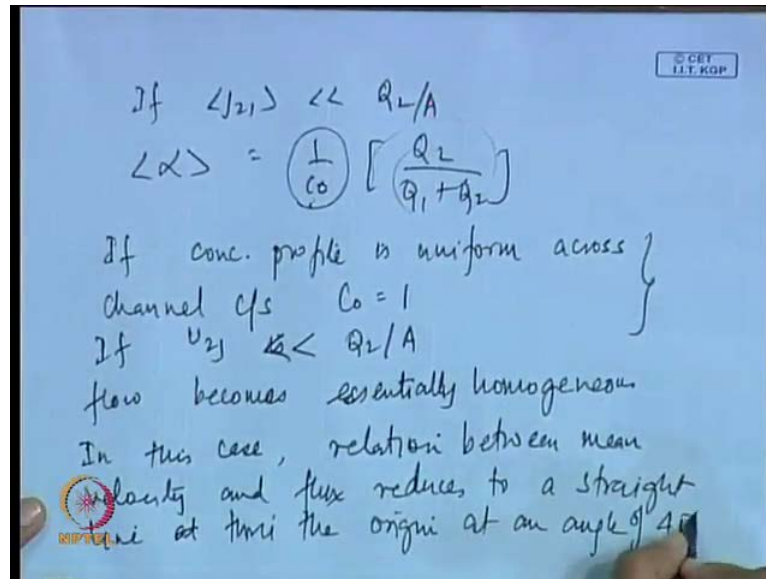 © CET
I.I.T. KGP
If <J21> << Q2/A
<α> = (1/C0) [ Q2 / Q1 + Q2 ]
If conc. profile is uniform across
channel c/s C0 = 1
If U2J << Q2/A
flow becomes essentially homogeneous
In this case, relation between mean
velocity and flux reduces to a straight
line at thru the origin at an angle of
NPTEL